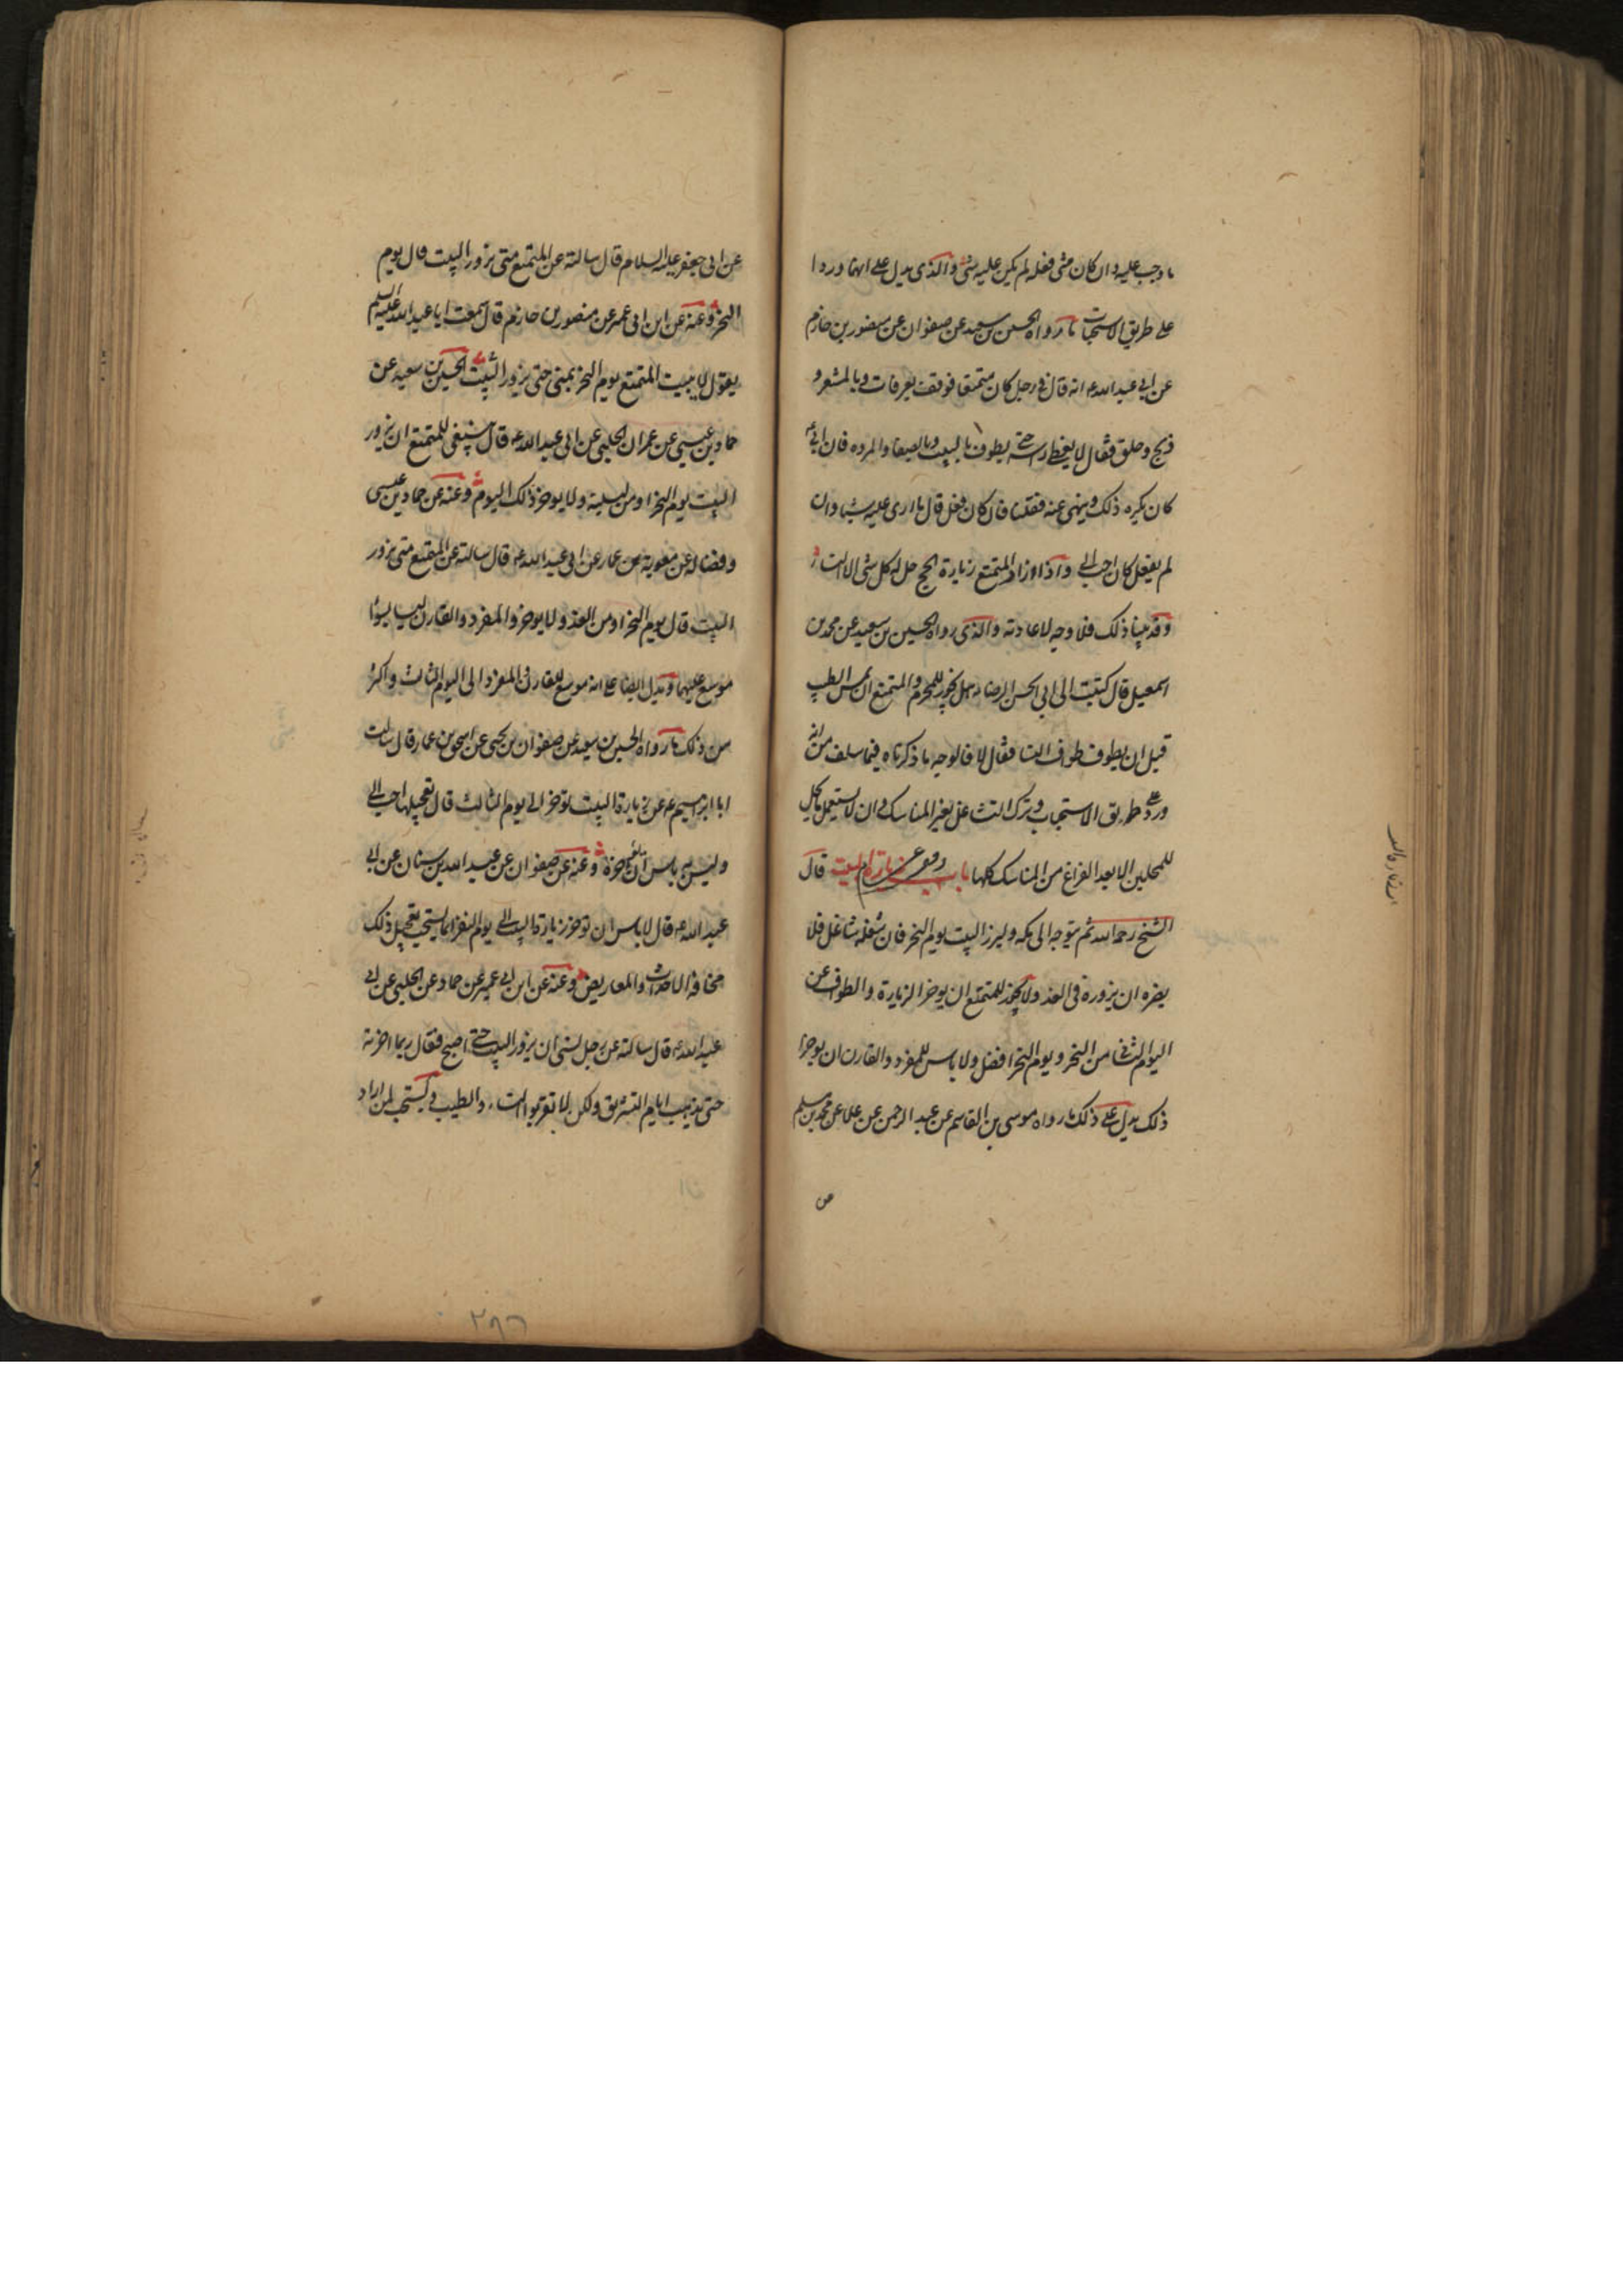 ما وجب عليه وان كان متى فعله لم يكن عليه شئ والذى يدل على انهما وردا
على طريق الاستحباب ما رواه الحسين بن سعيد عن صفوان عن منصور بن حازم
عن ابى عبد الله ع انه قال فى رجل كان متمتعا فوقف بعرفات وبالمشعر و
ذبح وحلق فقال لا يغطى راسه حتى يطوف بالبيت وبالصفا والمروة فان ابى ع
كان يكره ذلك وينهى عنه فقلنا فان كان فعل قال ما ارى عليه شيئا وان
لم يفعل كان احب الى واذا زار المتمتع زيارة الحج حل له كل شئ الا النساء
وقد بينا ذلك فلا وجه لاعادته والذى رواه الحسين بن سعيد عن محمد بن
اسمعيل قال كتبت الى ابى الحسن الرضا ع هل يجوز للمحرم المتمتع ان يمس الطيب
قبل ان يطوف طواف النساء فقال لا فالوجه ما ذكرناه فيما سلف من انه
ورد على طريق الاستحباب وترك التشاغل بغير المناسك وان لا يستعمل ما يحل
للمحلين الا بعد الفراغ من المناسك كلها باب زيارة البيت قال
الشيخ رحمه الله ثم يتوجه الى مكه وليزر البيت يوم النحر فان شغله شاغل فلا
يضره ان يزوره فى الغد ولا يجوز للمتمتع ان يوخر الزيارة والطواف عن
اليوم الثانى من النحر ويوم النحر افضل ولا باس للمفرد والقارن ان يوخرا
ذلك يدل على ذلك ما رواه موسى بن القاسم عن عبد الرحمن عن علا عن محمد بن مسلم
عن
عن ابى جعفر عليه السلام قال سالته عن المتمتع متى يزور البيت قال يوم
النحر وعنه عن ابن ابى عمير عن منصور بن حازم قال سمعت ابا عبد الله عليه السلم
يقول لا يبيت المتمتع يوم النحر بمنى حتى يزور البيت الحسين بن سعيد عن
حماد بن عيسى عن عمران الحلبى عن ابى عبد الله ع قال ينبغى للمتمتع ان يزور
البيت يوم النحر او من ليلته ولا يوخر ذلك اليوم وعنه عن حماد بن عيسى
وفضاله عن معوية بن عمار عن ابى عبد الله ع قال سالته عن المتمتع متى يزور
البيت قال يوم النحر او من الغد ولا يوخر والمفرد والقارن ليسا بسوا
موسع عليهما ويدل ايضا على انه موسع للقارن المفرد الى اليوم الثالث واكثر
من ذلك ما رواه الحسين بن سعيد عن صفوان بن يحيى عن اسحق بن عمار قال سالت
ابا ابراهيم ع عن زيارة البيت توخر الى يوم الثالث قال تعجيلها احب الى
وليس به باس ان اخره وعنه عن صفوان عن عبد الله بن سنان عن ابى
عبد الله ع قال لا باس ان توخر زيارة البيت الى يوم النفر انما يستحب تعجيل ذلك
مخافة الاحداث والمعاريض وعنه عن ابن ابى عمير عن حماد عن الحلبى عن ابى
عبد الله ع قال سالته عن رجل نسى ان يزور البيت حتى اصبح فقال ربما اخرته
حتى يذهب ايام التشريق ولكن لا تقربوا النساء والطيب ويستحب لمن اراد
٢٩٦